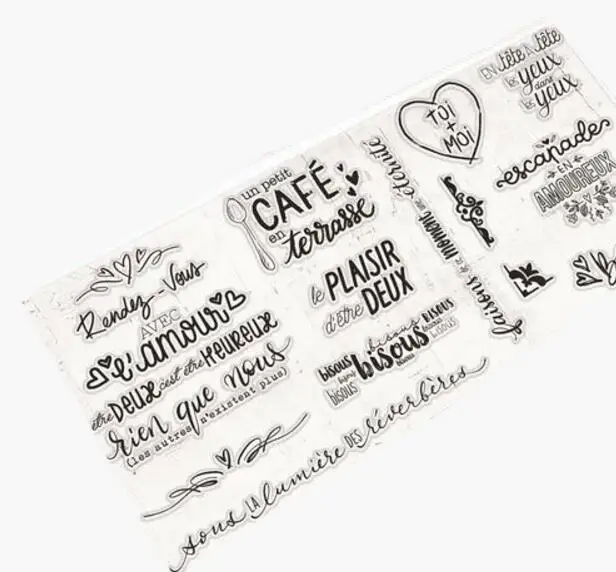 Rendez-Vous
AVEC
l'amour
être DEUX c'est être HEUREUX
rien que nous
(les autres n'existent plus)
sous LA lumière DES réverbères
un petit
CAFÉ
en
terrasse
le PLAISIR
d'être DEUX
bisous BISOUS
bisous bisous bisous
bisous
bisous
faisons de ce moment une éternité
TOI
+
MOI
EN tête À tête
les yeux
dans
les yeux
escapade
EN
AMOUREUX